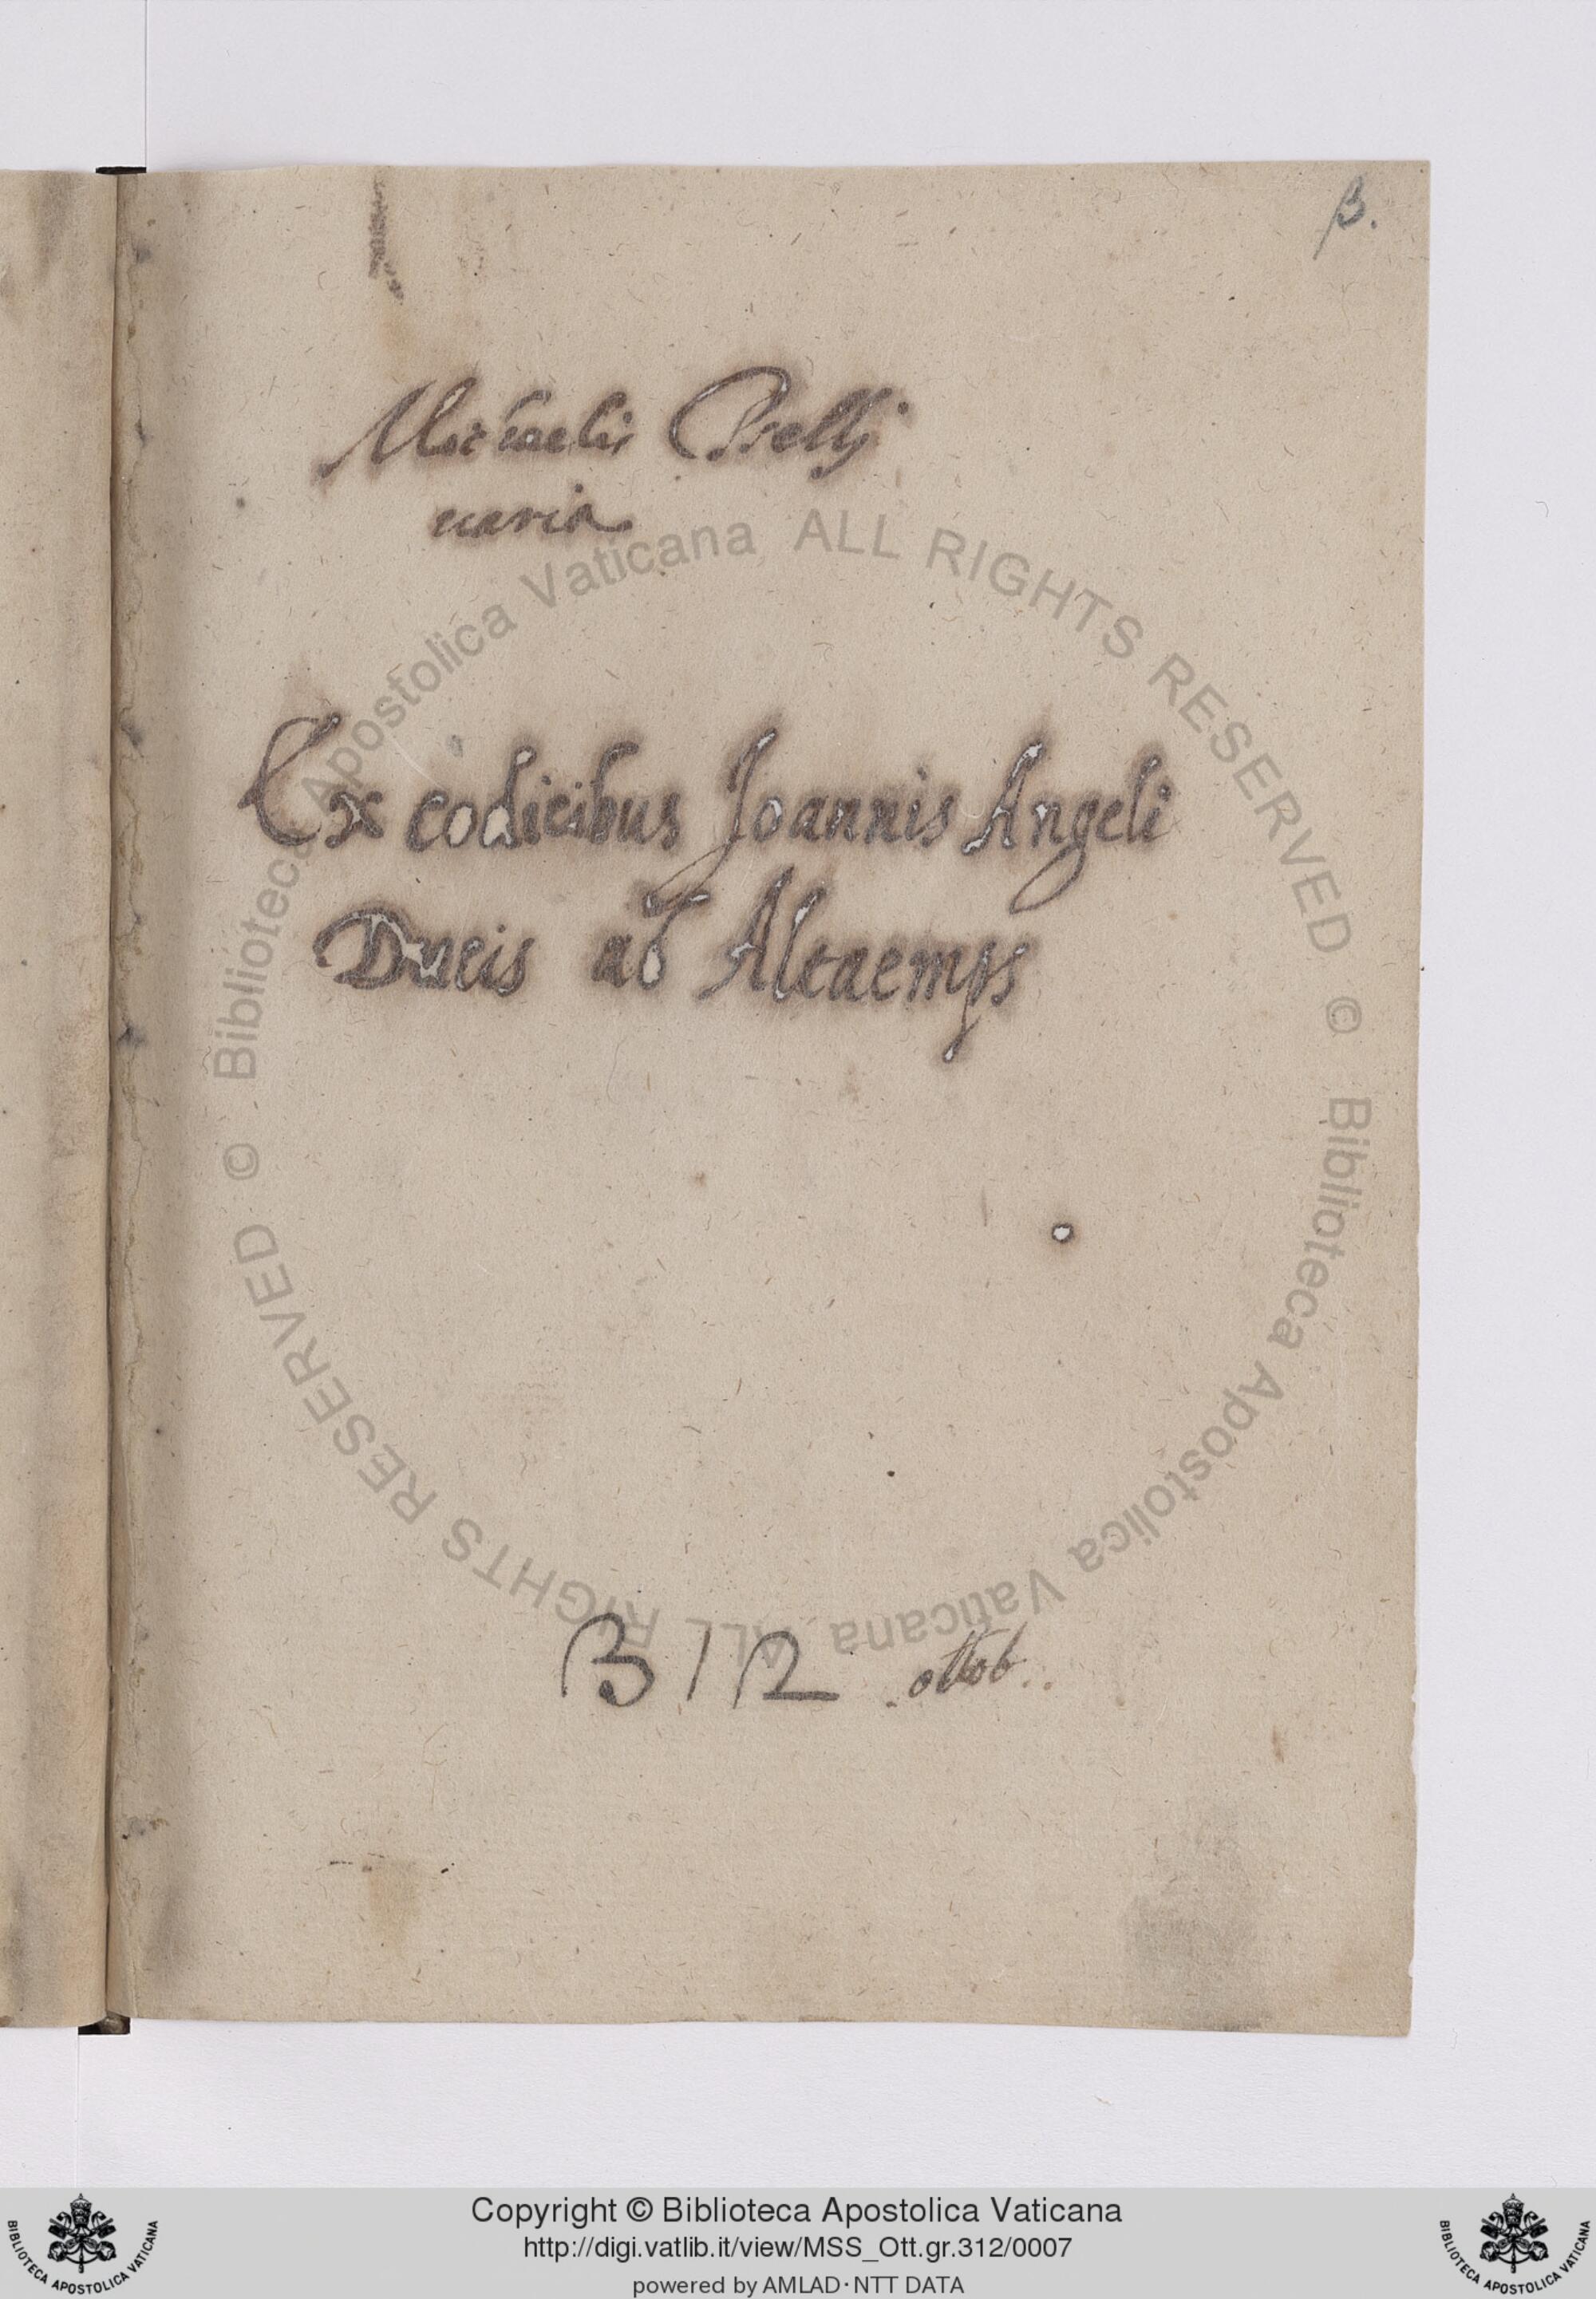 β.
Michaelis Pselli
uaria
Ex codicibus Joannis Angeli
Ducis ab Altaemps
312 ottob..
© Biblioteca Apostolica Vaticana ALL RIGHTS RESERVED © Biblioteca Apostolica Vaticana ALL RIGHTS RESERVED
BIBLIOTECA APOSTOLICA VATICANA
Copyright © Biblioteca Apostolica Vaticana
http://digi.vatlib.it/view/MSS_Ott.gr.312/0007
powered by AMLAD·NTT DATA
BIBLIOTECA APOSTOLICA VATICANA